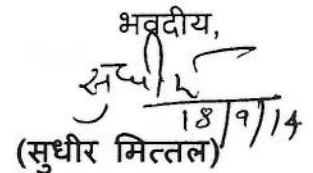 भवदीय,
सुधीर
18/9/14
(सुधीर मित्तल)